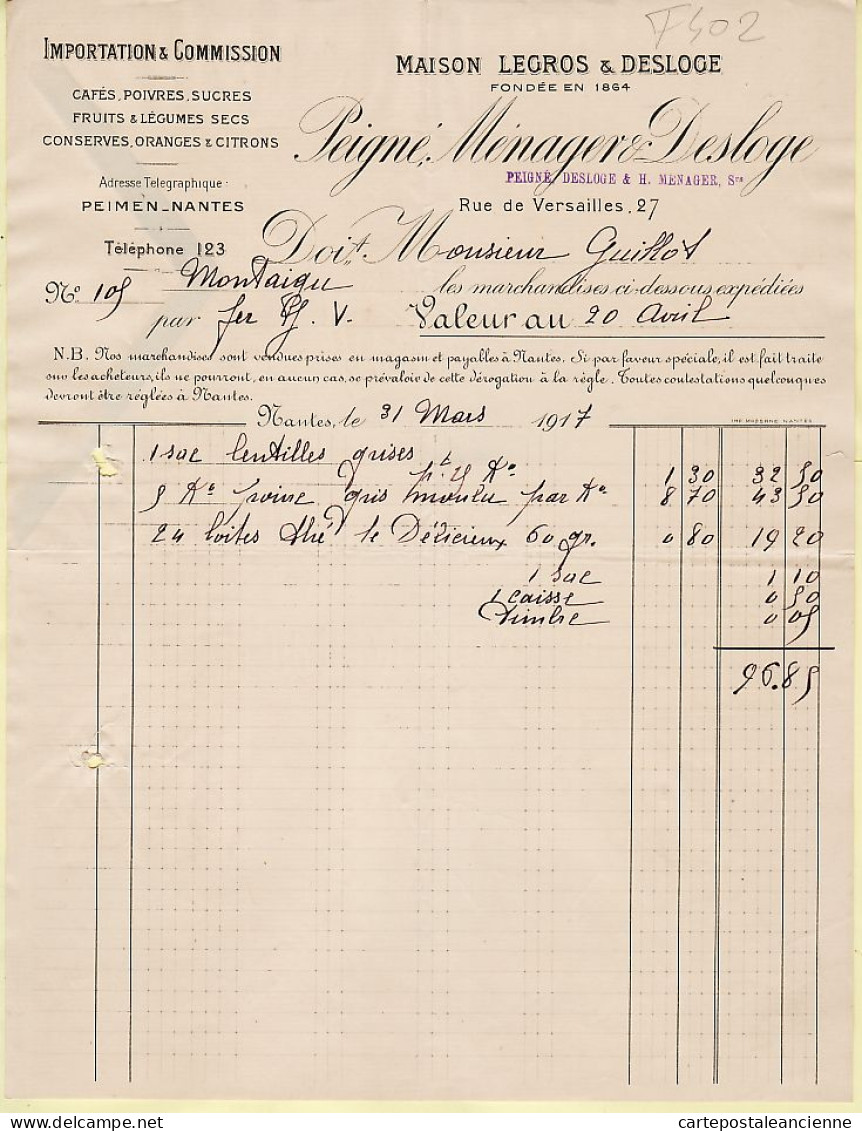 F402
IMPORTATION & COMMISSION
CAFÉS, POIVRES, SUCRES
FRUITS & LÉGUMES SECS
CONSERVES, ORANGES & CITRONS
Adresse Télégraphique:
PEIMEN_NANTES
Téléphone 123
MAISON LEGROS & DESLOGE
FONDÉE EN 1864
Peigné, Ménager & Desloge
PEIGNÉ, DESLOGE & H. MENAGER, Srs
Rue de Versailles, 27
Doit Monsieur Guillot
Montaigu
No. 105 les marchandises ci-dessous expédiées
par fer V. Valeur au 20 Avril
N.B. Nos marchandises sont vendues prises en magasin et payables à Nantes. Si par faveur spéciale, il est fait traite
sur les acheteurs, ils ne pourront, en aucun cas, se prévaloir de cette dérogation à la règle. Toutes contestations quelconques
devront être réglées à Nantes.
Nantes, le 31 Mars 1917
IMP. MODERNE NANTES
1 sac lentilles grises
pt 25 Ko 1 30 32 50
5 Ko poivre gris moulu par Ko 8 70 43 50
24 boites thé le Délicieux 60 gr. 0 80 19 20
1 sac 1 10
1 caisse 0 50
timbre 0 05
96.85
cartepostaleancienne